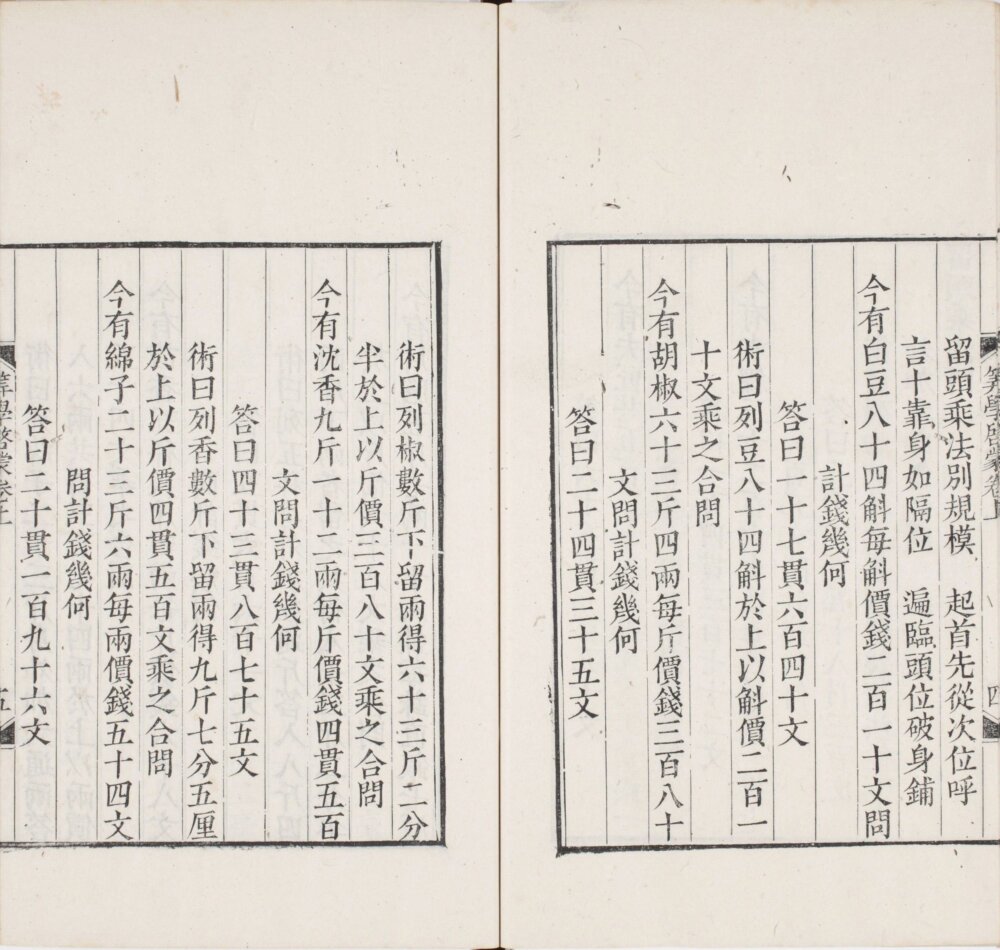 算學啓蒙卷上 四
留頭乘法別規模　起首先從次位呼
言十靠身如隔位　遍臨頭位破身鋪
今有白豆八十四斛每斛價錢二百一十文問
計錢幾何
答曰一十七貫六百四十文
術曰列豆八十四斛於上以斛價二百一
十文乘之合問
今有胡椒六十三斤四兩每斤價錢三百八十
文問計錢幾何
答曰二十四貫三十五文
術曰列椒數斤下留兩得六十三斤二分
半於上以斤價三百八十文乘之合問
今有沈香九斤一十二兩每斤價錢四貫五百
文問計錢幾何
答曰四十三貫八百七十五文
術曰列香數斤下留兩得九斤七分五厘
於上以斤價四貫五百文乘之合問
今有綿子二十三斤六兩每兩價錢五十四文
問計錢幾何
答曰二十貫一百九十六文
算學啓蒙卷上 五